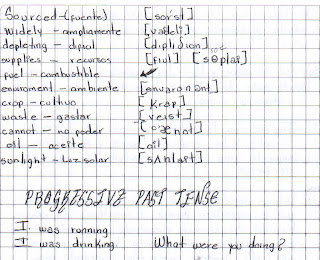 Sourced - (fuente) [sorst]
widely - ampliamente [vaideli]
depleting - dificil [diplidion]
supplies - recursos [fiul] [søplai]
fuel - combustible
enviroment - ambiente [envaronant]
crop - cultivo [Krap]
waste - gastar [veist]
cannot - no poder [cænot]
oil - aceite [oil]
sonlight - Luz solar [sʌnlait]
PROGRESSIVE PAST TENSE
I was running
I was drinking. What were you doing?